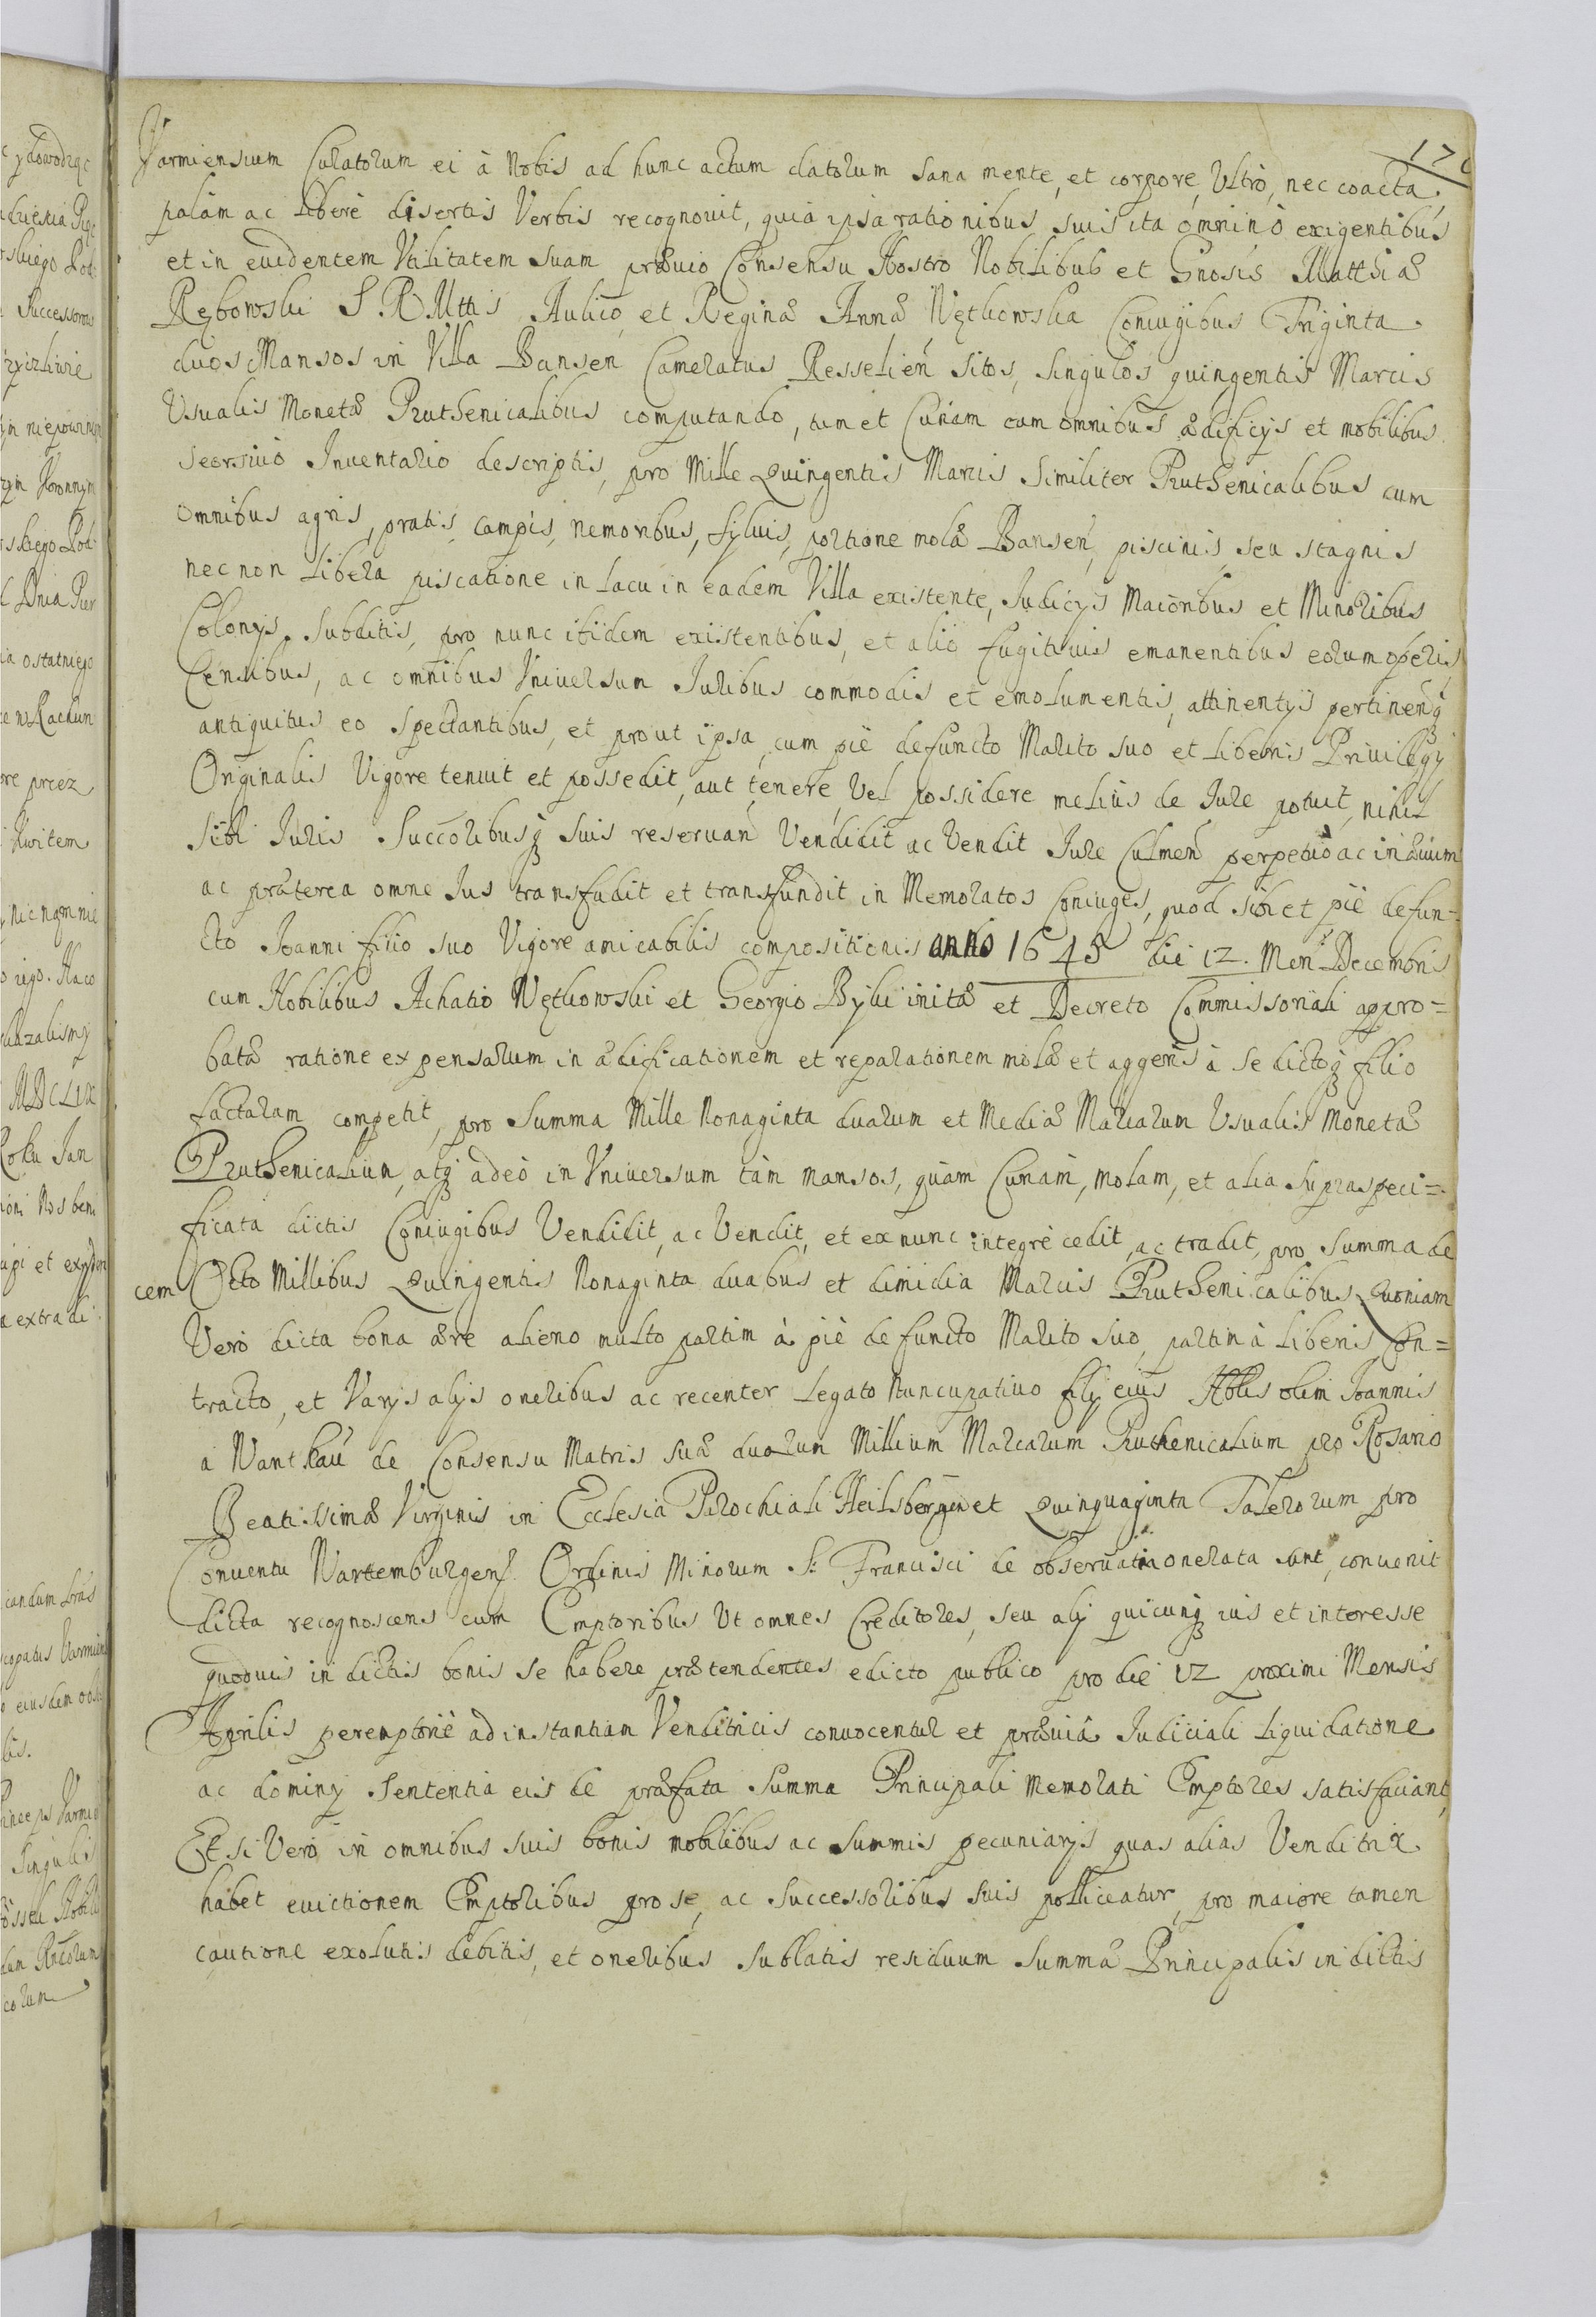 Varmiensium Curatorum ei à Nobis ad hunc actum datorum sana mente, et corpore, Ultrò, nec coacta,
palàm ac liberè disertis Verbis recognovit, quia ipsa rationibus suis ita omninò exigentibus
et in evidentem Utilitatem suam prævio Consensu Nostro Nobilibus et Gnosis Matthiæ
Rębowski S. R. Mttis Aulico, et Reginæ Annæ Nętkowska Coniugibus Triginta
duos Mansos in Villa Bansen Cameratus Resselień sitos, singulos quingentis Marcis
Usualis Monetæ Pruthenicalibus computando, tum et Curiam cum omnibus ædificijs et mobilibus
seorsivò Inventario descriptis, pro Mille Quingentis Marcis similiter Pruthenicalibus cum
omnibus agris, pratis, campis, nemoribus, sylvis, portione molæ Bansen, piscinis, seu stagnis
nec non libera piscatione in lacu in eadem Villa existente, Judicijs Maioribus et Minoribus
Colonijs, Subditis, pro nunc ibidem existentibus, et aliò fugitivis emanentibus eorum operis,
Censibus, ac omnibus Universum Juribus commodis et emolumentis, attinentijs pertinenq
antiquitus eo spectantibus, et prout ipsa, cum piè defuncto Marito suo et liberis Privilegij
Originalis Vigore tenuit et possedit, aut tenere, Vel possidere melius de Jure potuit, nihil
sibi Juris Succoribusq suis reservań Vendidit ac Vendit Jure Culmeń perpetuò ac in ævum
ac præterea omne Jus transfudit et transfundit in Memoratos Coniuges, quod sibi et piè defun-
cto Joanni filio suo Vigore amicabilis compositionis anno 1645 die 12. Mens Decembris
cum Nobilibus Achatio Nętkowski et Georgio Byli initæ et Decreto Commissoriali appro=
batæ ratione expensarum in ædificationem et reparationem molæ et aggeris à se dictoq filio
factarum competit, pro Summa Mille Nonaginta duarum et Mediæ Marcarum Usualis Monetæ
Pruthenicalium, atq adeò in Universum tàm mansos, quàm Curiam, molam, et alia supraspeci=
ficata dictis Coniugibus Vendidit, ac Vendit, et ex nunc integrè cedit, ac tradit, pro summa de
cem Octo Millibus Quingentis Nonaginta duabus et dimidia Marcis Pruthenicalibus, Quoniam
Verò dicta bona ære alieno multo partim à piè defuncto Marito suo, partim à liberis Con=
tracto, et Varijs alijs oneribus ac recenter Legato Nuncupativo filij eius Nblis olim Joannis
a Nantkau de Consensu Matris suæ duorum Millium Marcarum Pruthenicalium pro Rosario
Beatissimæ Virginis in Ecclesia Parochiali Heilsbergen et Quinquaginta Talerorum pro
Conventu Wartemburgens. Ordinis Minorum S. Francisci de observatia onerata sunt, convenit
dicta recognoscens cum Emptoribus Ut omnes Creditores, seu alij quicunq ius et interesse
quoduis in dictis bonis se habere prætendentes edicto publico pro die 12 proximi Mensis
Aprilis peremptoriè ad instantiam Venditricis convocentur et prævia Judiciali liquidatione
ac dominij sententia eis de præfata Summa Principali Memorati Emptores satisfaciant,
Et si Verò in omnibus suis bonis mobilibus ac summis pecuniarijs quas alias Venditrix
habet evictionem Emptoribus pro se, ac Successoribus suis polliceatur, pro maiore tamen
cautione exolutis debitis, et oneribus sublatis residuum Summæ Principalis in dictis